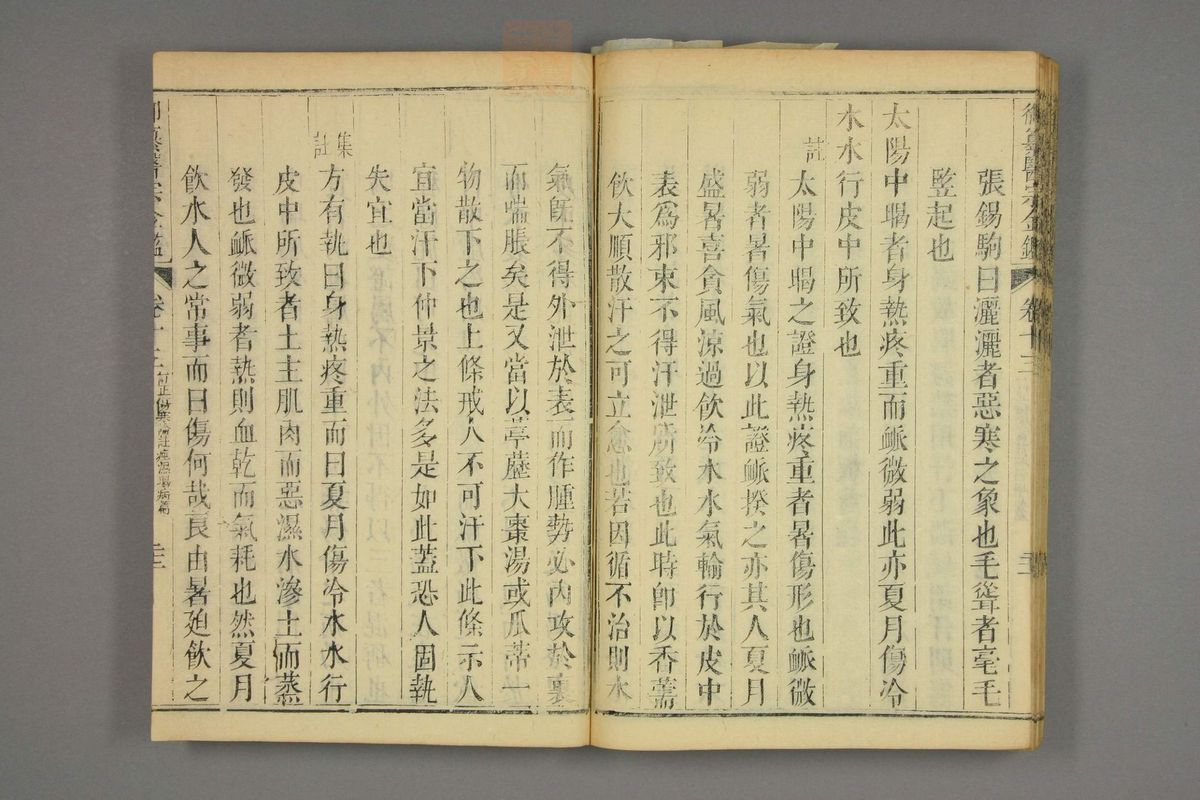 張錫駒曰灑灑者惡寒之象也毛聳者毫毛
豎起也
太陽中暍者身熱疼重而脈微弱此亦夏月傷冷
水水行皮中所致也
註太陽中暍之證身熱疼重者暑傷形也脈微
弱者暑傷氣也以此證脈揆之亦其人夏月
盛暑喜貪風涼過飲冷水水氣輸行於皮中
表為邪束不得汗泄所致也此時即以香薷
飲大順散汗之可立愈也若因循不治則水
氣既不得外泄於表而作腫勢必內攻於裏
而喘脹矣是又當以葶藶大棗湯或瓜蒂一
物散下之也上條戒人不可汗下此條示人
宜當汗下仲景之法多是如此蓋恐人固執
失宜也
集註方有執曰身熱疼重而曰夏月傷冷水水行
皮中所致者土主肌肉而惡濕水滲土而蒸
發也脈微弱者熱則血乾而氣耗也然夏月
飲水人之常事而曰傷何哉良由暑迫飲之
御纂醫宗金鑑 卷十三 訂正傷寒論註痙濕暍病篇